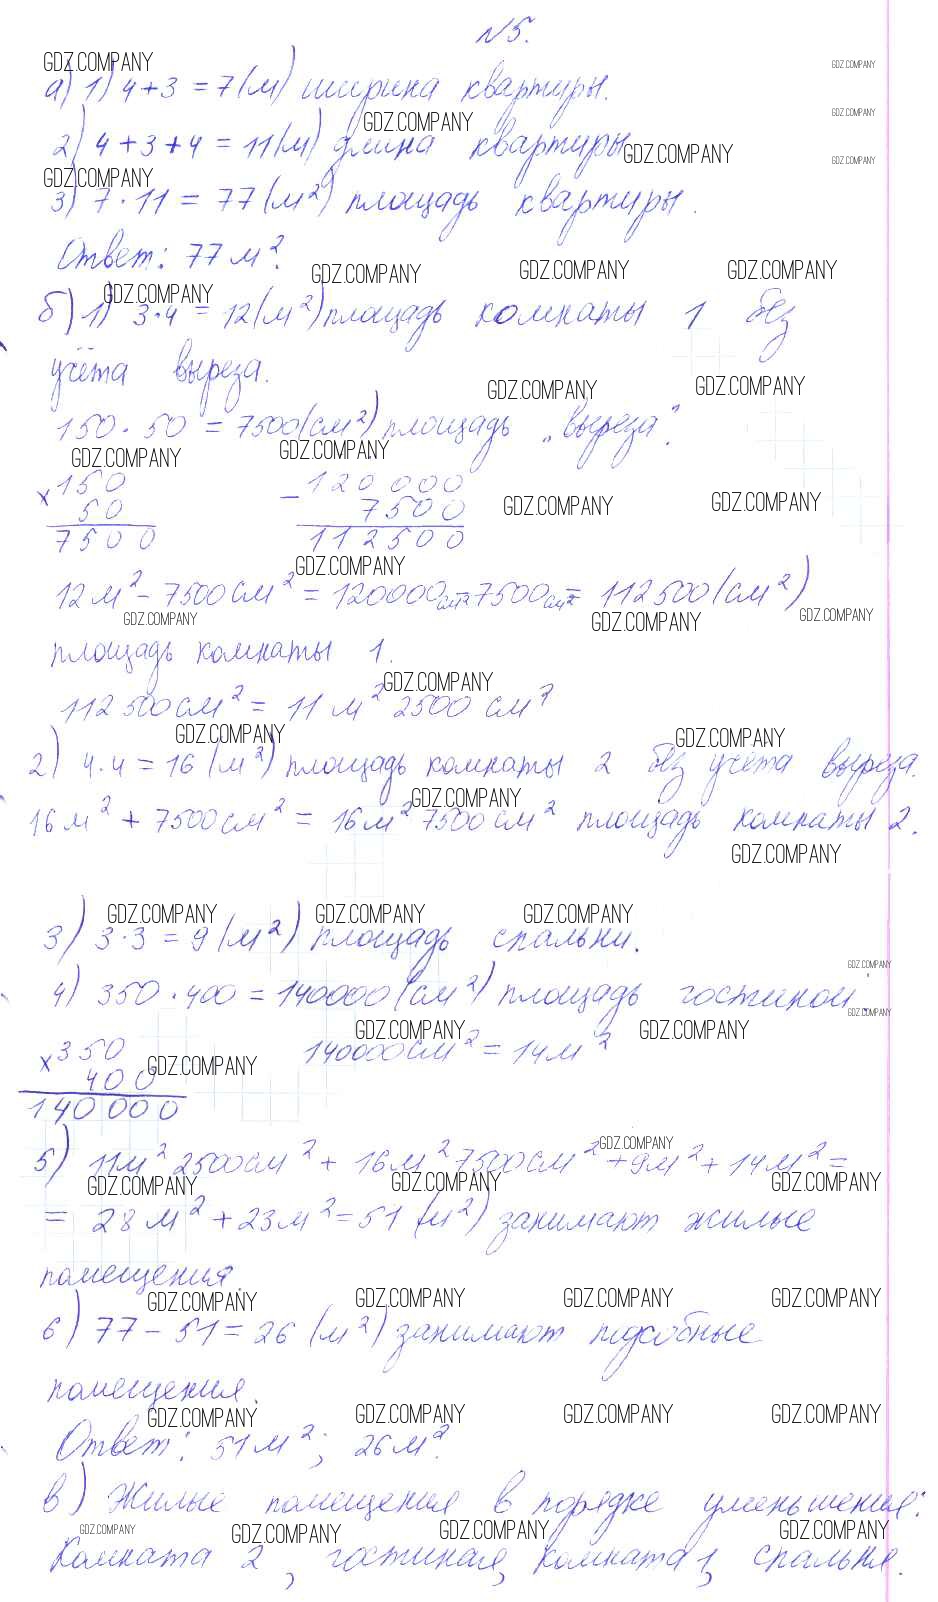 №5.
а) 1) 4+3 = 7(м) ширина квартиры.
2) 4+3+4 = 11(м) длина квартиры
3) 7·11 = 77(м²) площадь квартиры.
Ответ: 77 м².
б) 1) 3·4 = 12(м²) площадь комнаты 1 без
учёта выреза.
150·50 = 7500(см²) площадь „выреза".
×150
50
7500
−120 000
7500
112500
12 м² - 7500 см² = 120000см²-7500см² = 112500(см²)
площадь комнаты 1.
112500 см² = 11 м² 2500 см²
2) 4·4 = 16 (м²) площадь комнаты 2 без учёта выреза.
16 м² + 7500 см² = 16 м² 7500 см² площадь комнаты 2.
3) 3·3 = 9 (м²) площадь спальни.
4) 350·400 = 140000(см²) площадь гостиной.
×350
400
140 000
140000 см² = 14 м²
5) 11 м² 2500 см² + 16 м² 7500 см² + 9 м² + 14 м² =
= 28 м² + 23 м² = 51 (м²) занимают жилые
помещения.
6) 77 - 51 = 26 (м²) занимают подсобные
помещения.
Ответ: 51 м²; 26 м².
в) Жилые помещения в порядке уменьшения:
Комната 2, гостиная, комната 1, спальня.
GDZ.COMPANY